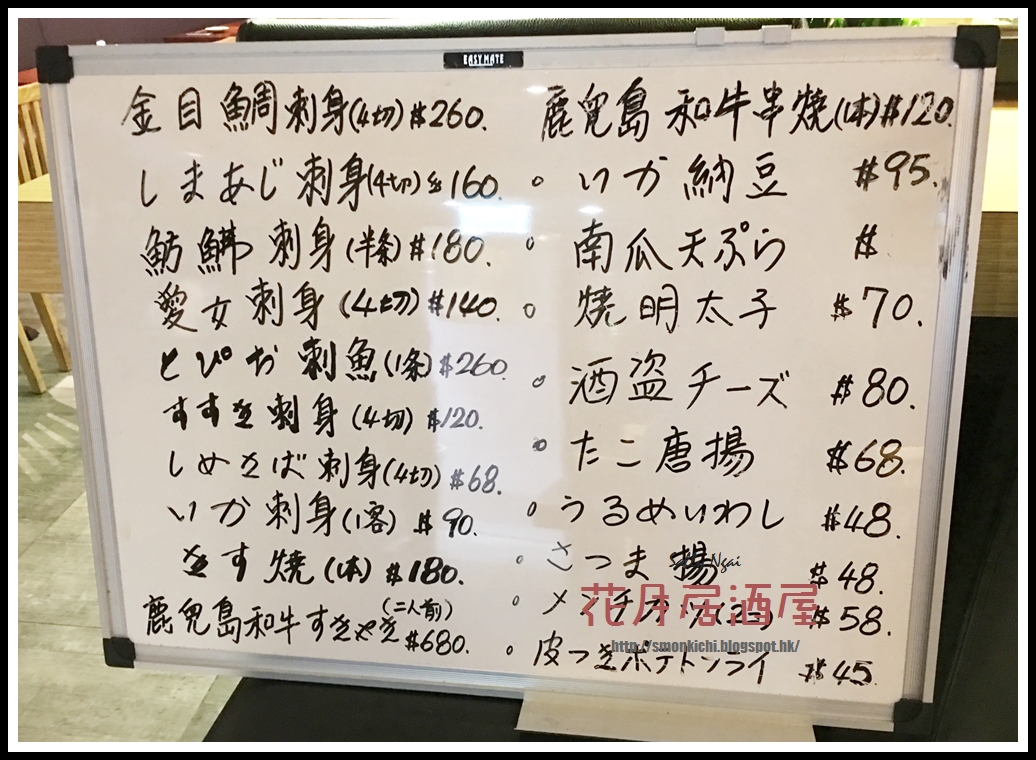 EASY MATE
金目鯛刺身(4切)$260.
しまあじ刺身(4切)$160.
魴鮄刺身(半条)$180.
愛女刺身(4切)$140.
とびお刺魚(1条)$260.
すずき刺身(4切)$120.
しめさば刺身(4切)$68.
いか刺身(1客)$90.
きす焼(1本)$180.
鹿児島和牛すきやき(二人前)$680.
鹿児島和牛串焼(1本)$120.
いか納豆 $95.
南瓜天ぷら $
焼明太子 $70.
酒盗チーズ $80.
たこ唐揚 $68.
うるめいわし $48.
さつま揚 $48.
メンチカツ $58.
皮つきポテトフライ $45.
Ngai
花月居酒屋
http://smonkichi.blogspot.hk/